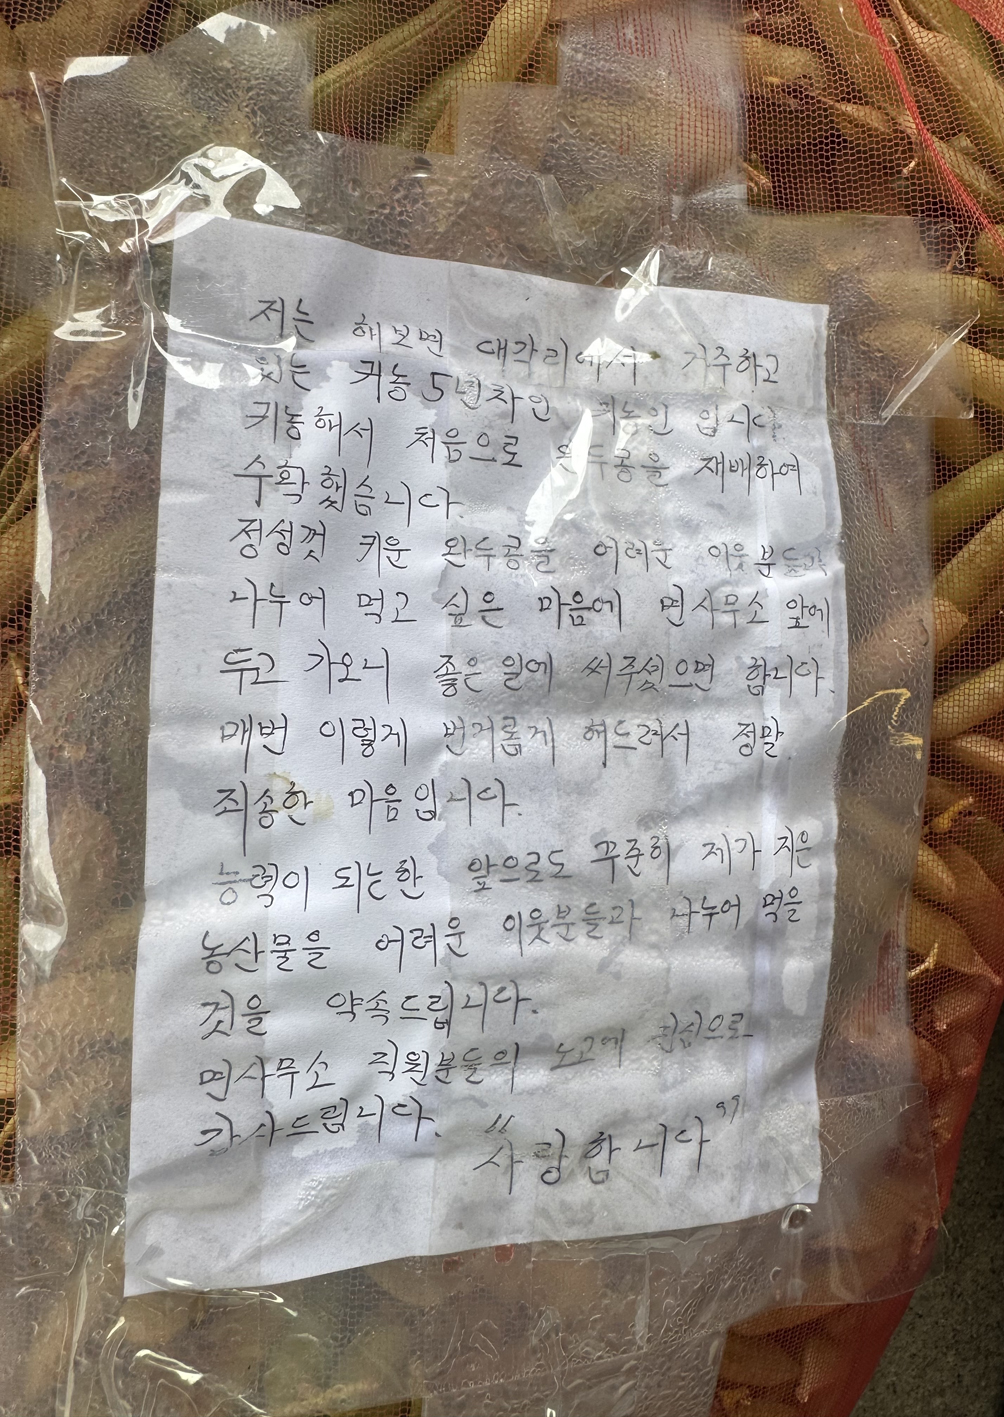 저는 해보면 대각리에서 거주하고
있는 귀농 5년차인 귀농인 입니다
귀농해서 처음으로 완두콩을 재배하여
수확했습니다.
정성껏 키운 완두콩을 어려운 이웃분들과
나누어 먹고 싶은 마음에 면사무소 앞에
두고 가오니 좋은 일에 써주셨으면 합니다.
매번 이렇게 번거롭게 해드려서 정말
죄송한 마음입니다.
능력이 되는한 앞으로도 꾸준히 제가 지은
농산물을 어려운 이웃분들과 나누어 먹을
것을 약속드립니다.
면사무소 직원분들의 노고에 진심으로
감사드립니다. "사랑합니다"